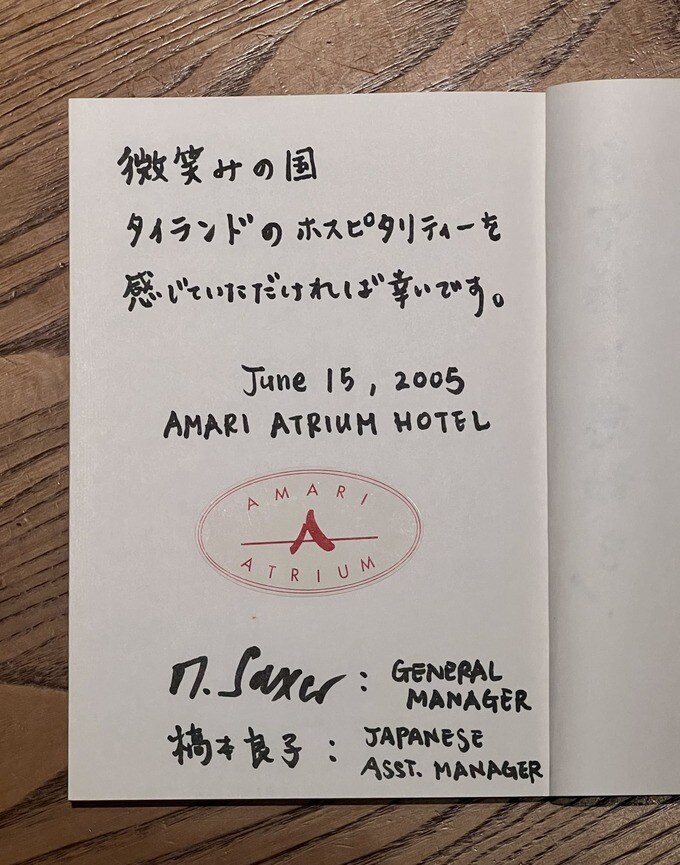 微笑みの国
タイランドのホスピタリティーを
感じていただければ幸いです。
June 15, 2005
AMARI ATRIUM HOTEL
AMARI
ATRIUM
M. Saxer : GENERAL
MANAGER
橋本良子 : JAPANESE
ASST. MANAGER